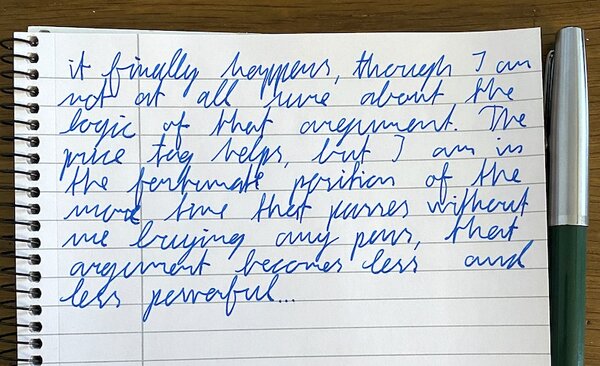 it finally happens, though I am
not at all sure about the
logic of that argument. The
price tag helps, but I am in
the fortunate position of the
more time that passes without
me buying any pens, that
argument becomes less and
less powerful...